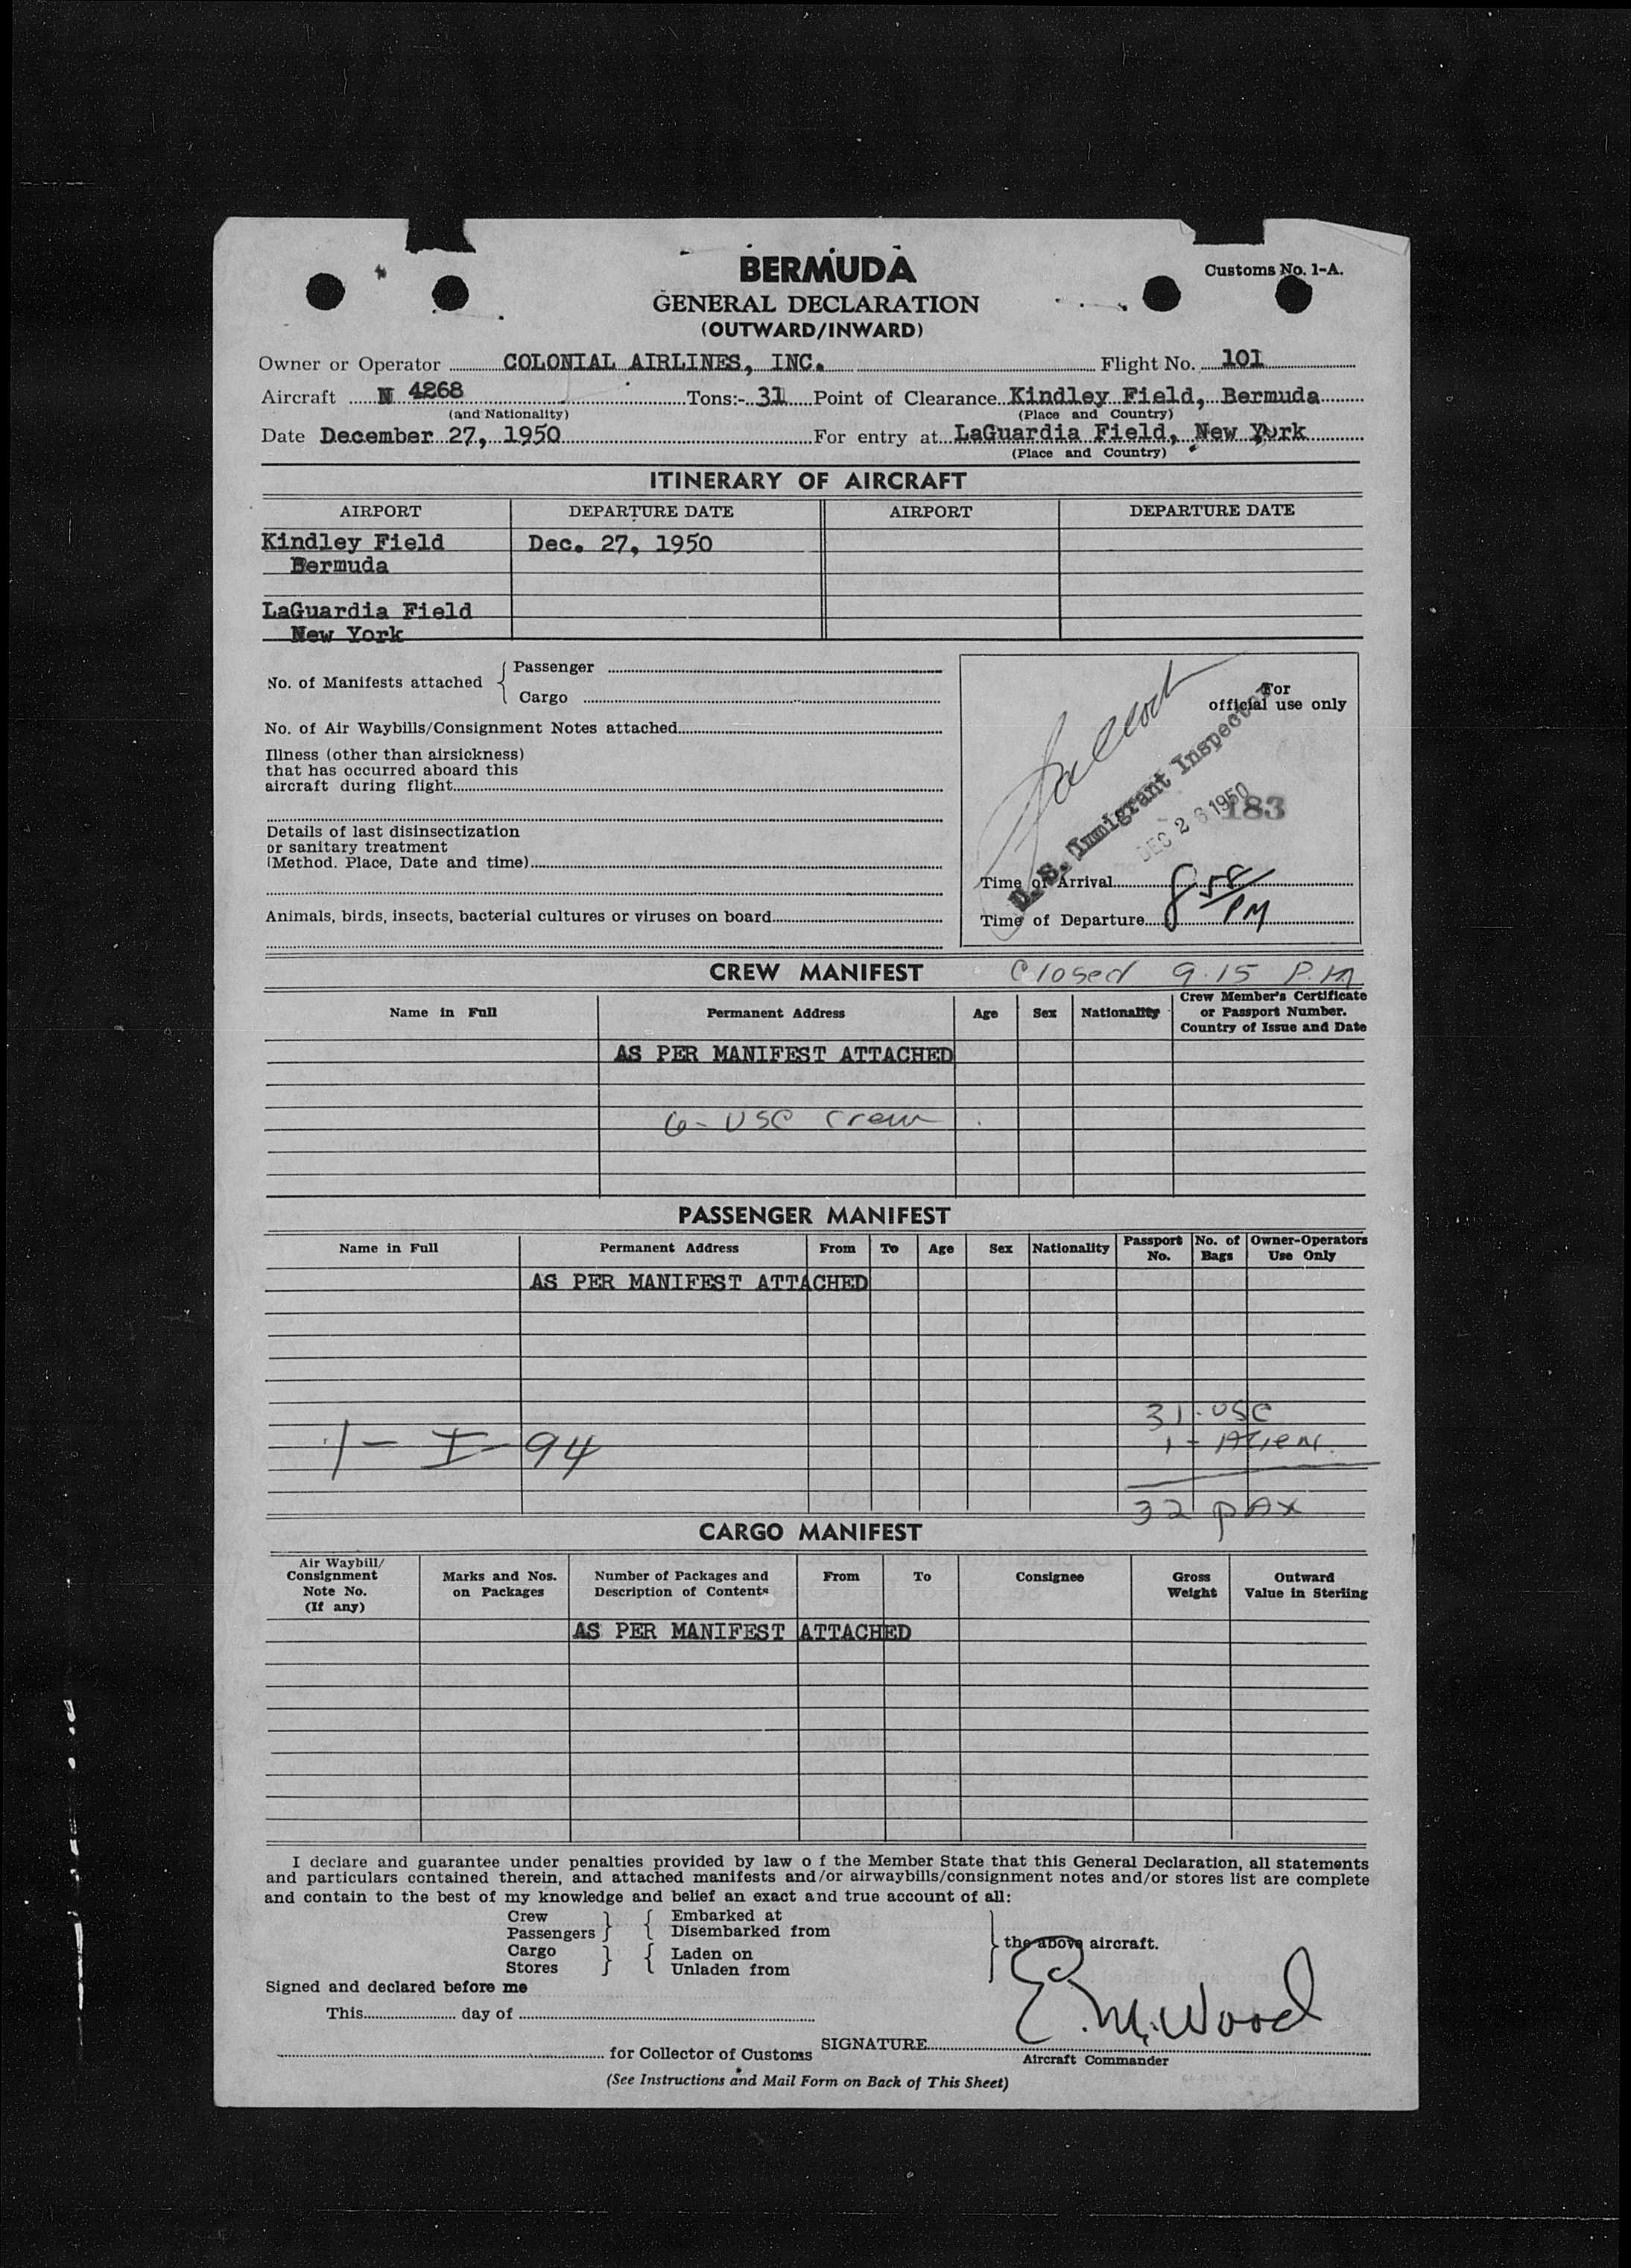 BERMUDA
Customs No. 1-A.
GENERAL DECLARATION
(OUTWARD/INWARD)
Owner or Operator COLONIAL AIRLINES, INC. Flight No. 101
Aircraft N 4268 Tons:- 31 Point of Clearance Kindley Field, Bermuda
(and Nationality) (Place and Country)
Date December 27, 1950 For entry at LaGuardia Field, New York
(Place and Country)
ITINERARY OF AIRCRAFT
AIRPORT DEPARTURE DATE AIRPORT DEPARTURE DATE
Kindley Field Dec. 27, 1950
Bermuda
LaGuardia Field
New York
No. of Manifests attached { Passenger
Cargo
No. of Air Waybills/Consignment Notes attached
Illness (other than airsickness)
that has occurred aboard this
aircraft during flight
Details of last disinsectization
or sanitary treatment
(Method. Place, Date and time)
Animals, birds, insects, bacterial cultures or viruses on board
For
official use only
U.S. Immigrant Inspector
DEC 26 1950
183
Time of Arrival 8 58/PM
Time of Departure
CREW MANIFEST Closed 9.15 P.M
Name in Full Permanent Address Age Sex Nationality Crew Member's Certificate
or Passport Number.
Country of Issue and Date
AS PER MANIFEST ATTACHED
6- USC Crew
PASSENGER MANIFEST
Name in Full Permanent Address From To Age Sex Nationality Passport No. No. of Bags Owner-Operators Use Only
AS PER MANIFEST ATTACHED
31-USC
1- Alien
1- I-94
32 pax
CARGO MANIFEST
Air Waybill/
Consignment
Note No.
(If any)
Marks and Nos.
on Packages
Number of Packages and
Description of Contents
From To Consignee
Gross
Weight
Outward
Value in Sterling
AS PER MANIFEST ATTACHED
I declare and guarantee under penalties provided by law o f the Member State that this General Declaration, all statements
and particulars contained therein, and attached manifests and/or airwaybills/consignment notes and/or stores list are complete
and contain to the best of my knowledge and belief an exact and true account of all:
Crew } { Embarked at
Passengers } { Disembarked from
} the above aircraft.
Cargo } { Laden on
Stores } { Unladen from
Signed and declared before me
This day of
E.M. Wood
for Collector of Customs SIGNATURE
Aircraft Commander
(See Instructions and Mail Form on Back of This Sheet)